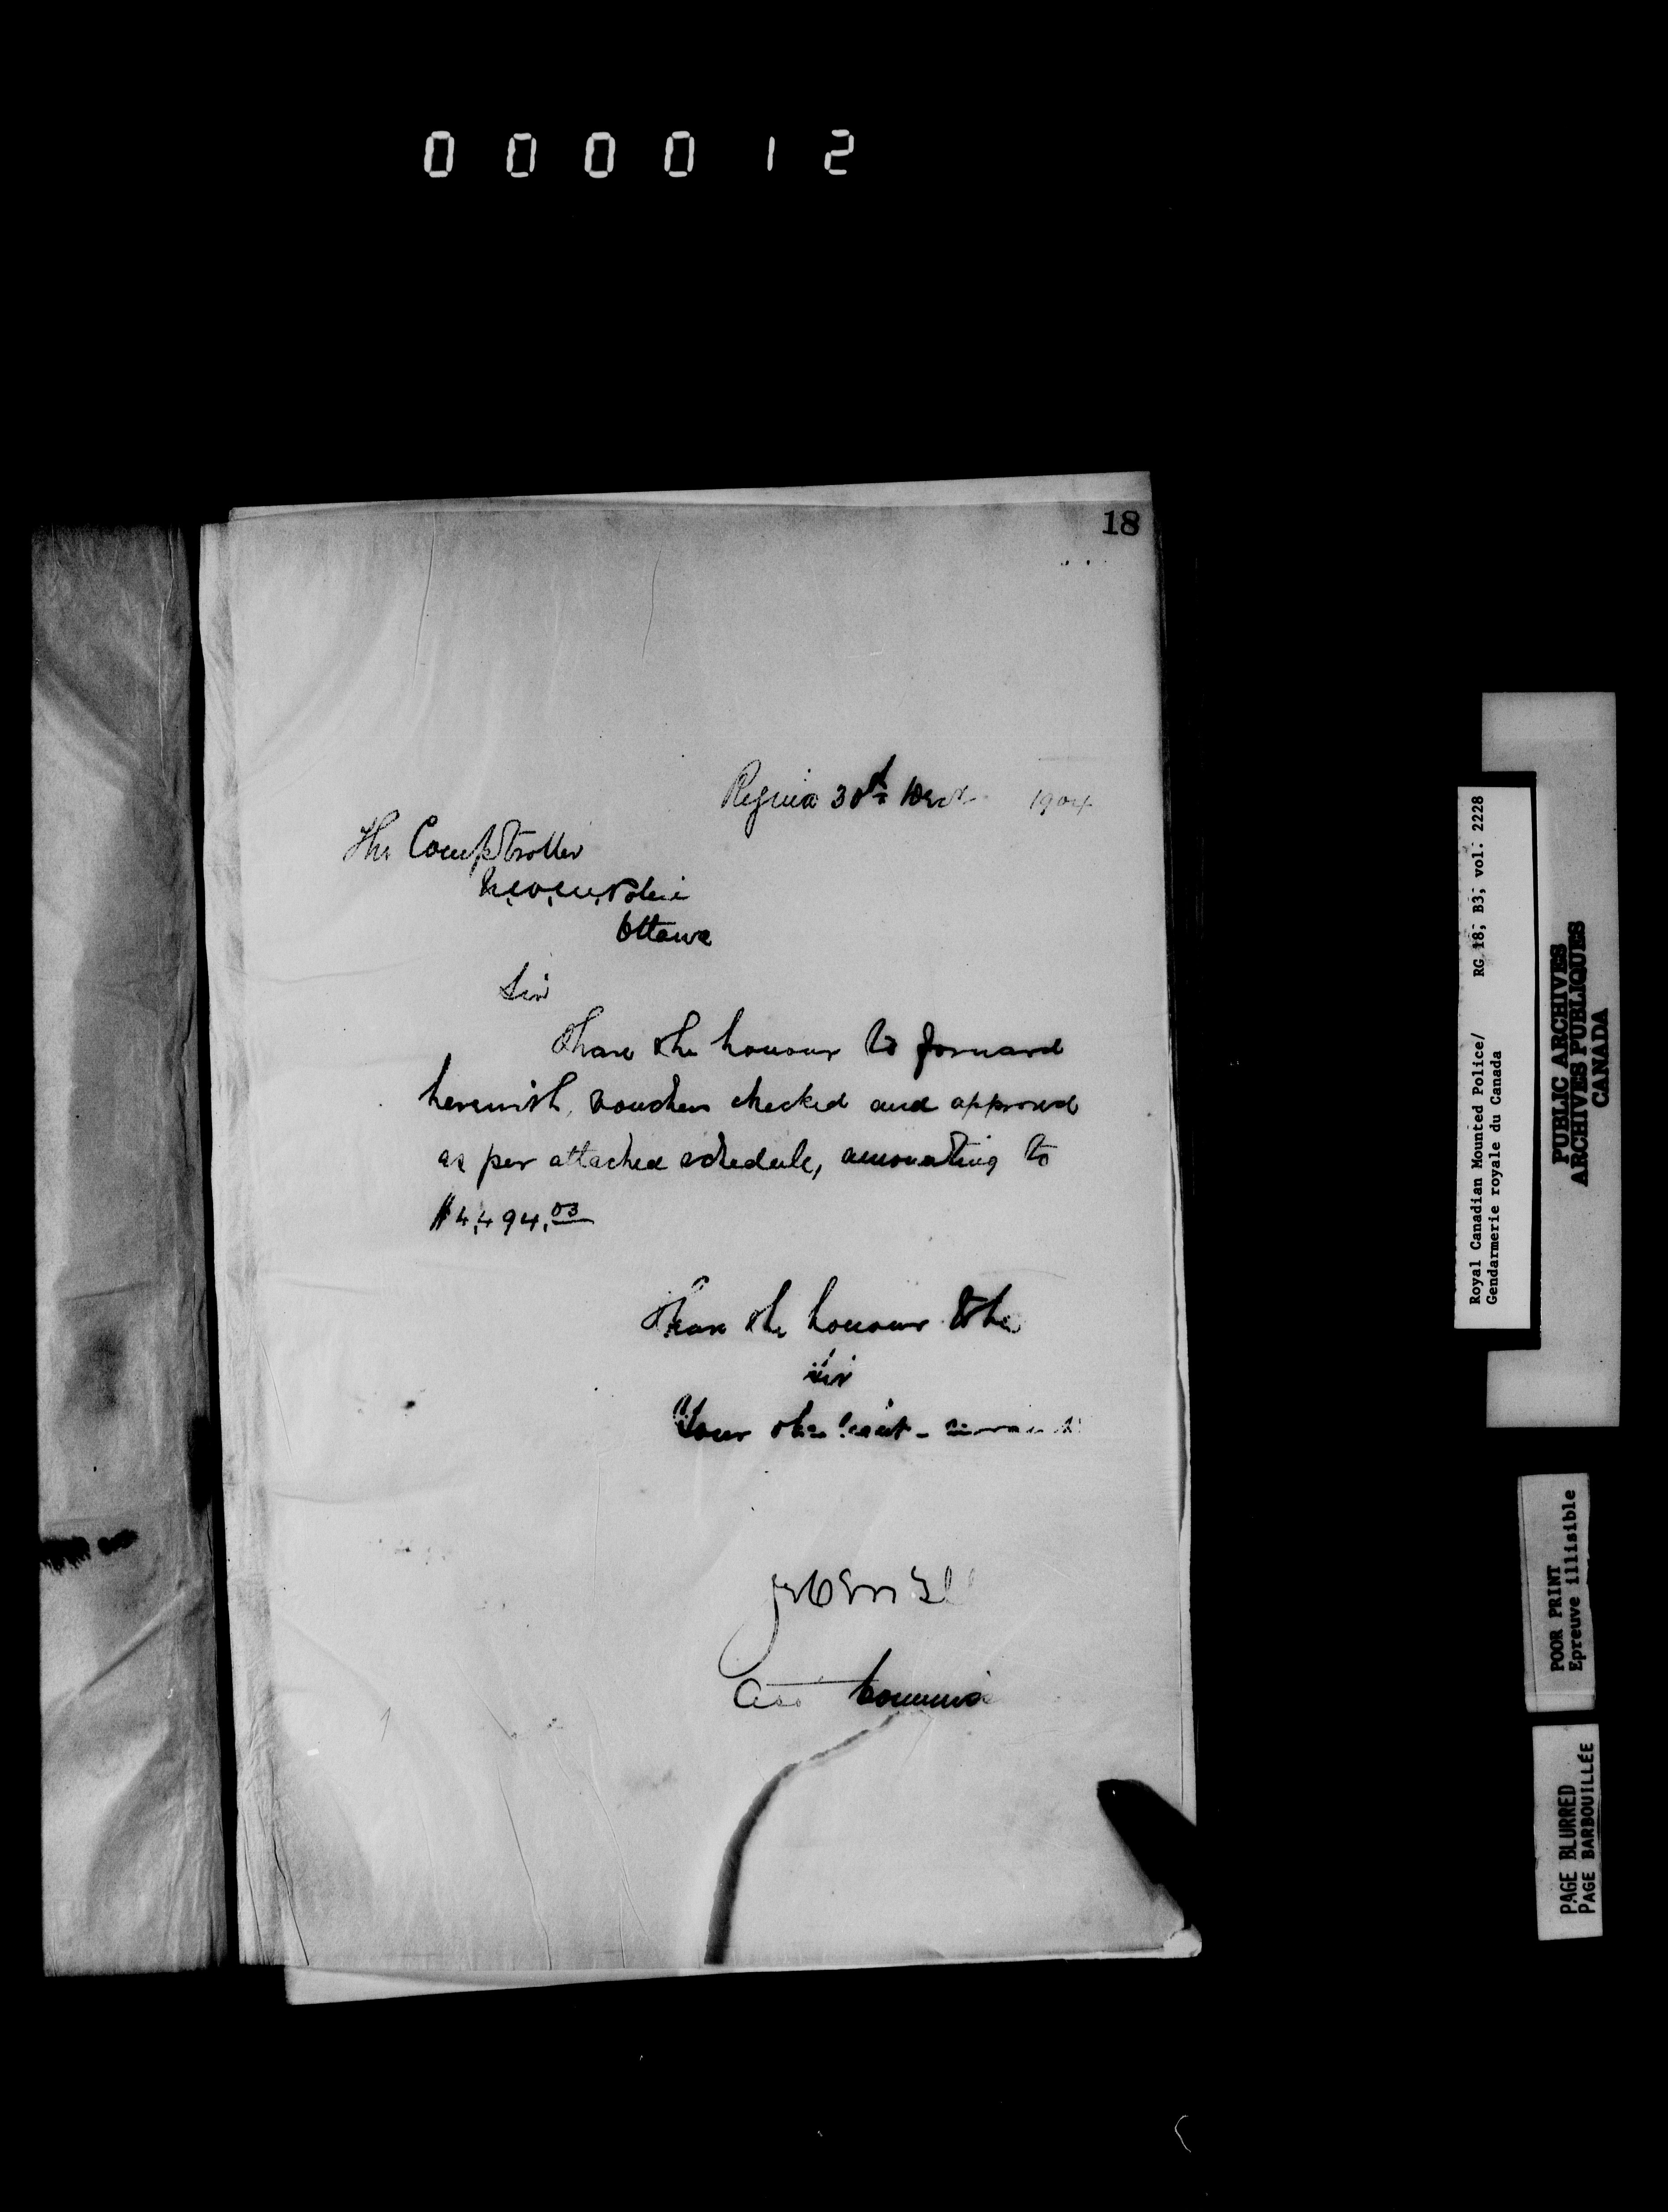 000012
18
Regina 30th Decr 1904
The Comptroller
N.W.M. Police
Ottawa
Sir
I have the honour to forward
herewith, vouchers checked and approved
as per attached schedule, amounting to
$4,494.03
I have the honour to be
Sir
Your obedient servant
Asst Commis
Royal Canadian Mounted Police/ RG 18; B3; vol: 2228
Gendarmerie royale du Canada
PUBLIC ARCHIVES
ARCHIVES PUBLIQUES
CANADA
POOR PRINT
Epreuve illisible
PAGE BLURRED
PAGE BARBOUILLÉE